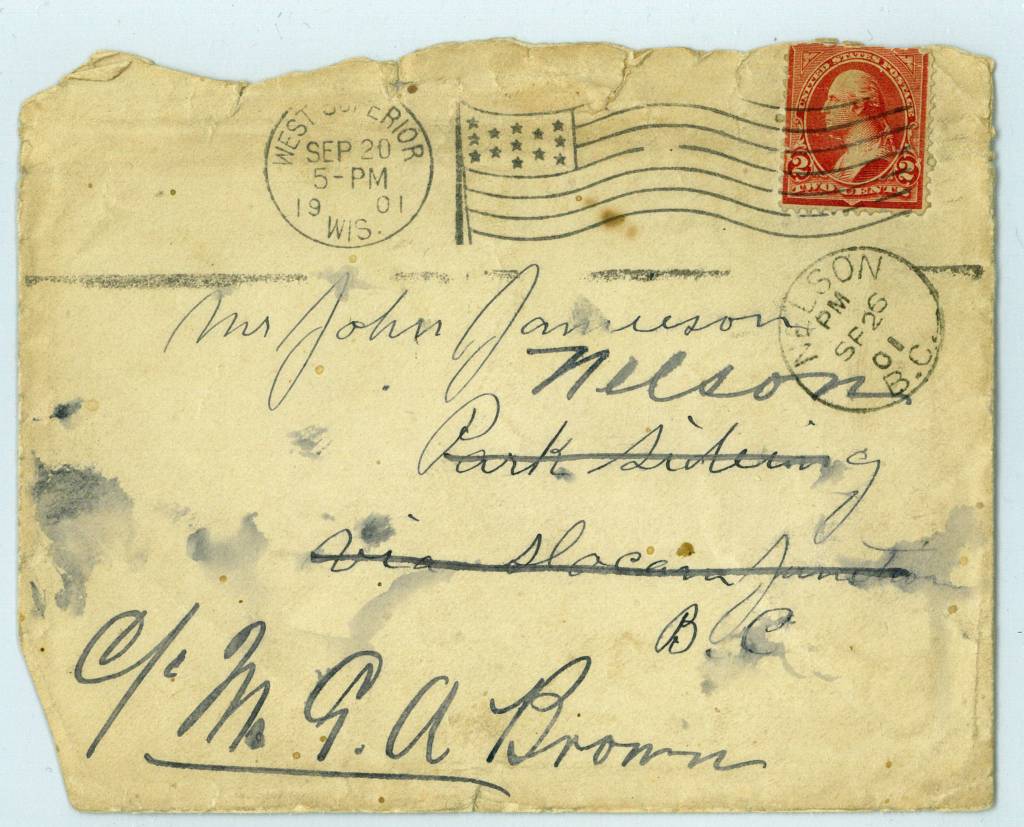 WEST SUPERIOR
SEP 20
5-PM
19 01
WIS.
UNITED STATES POSTAGE
2 2
TWO CENTS
NELSON
PM
SP 26
01
B.C.
Mr John Jamieson
Nelson
Park Sideing
via Slocan Junction
B. C
C/o M. G. A Brown